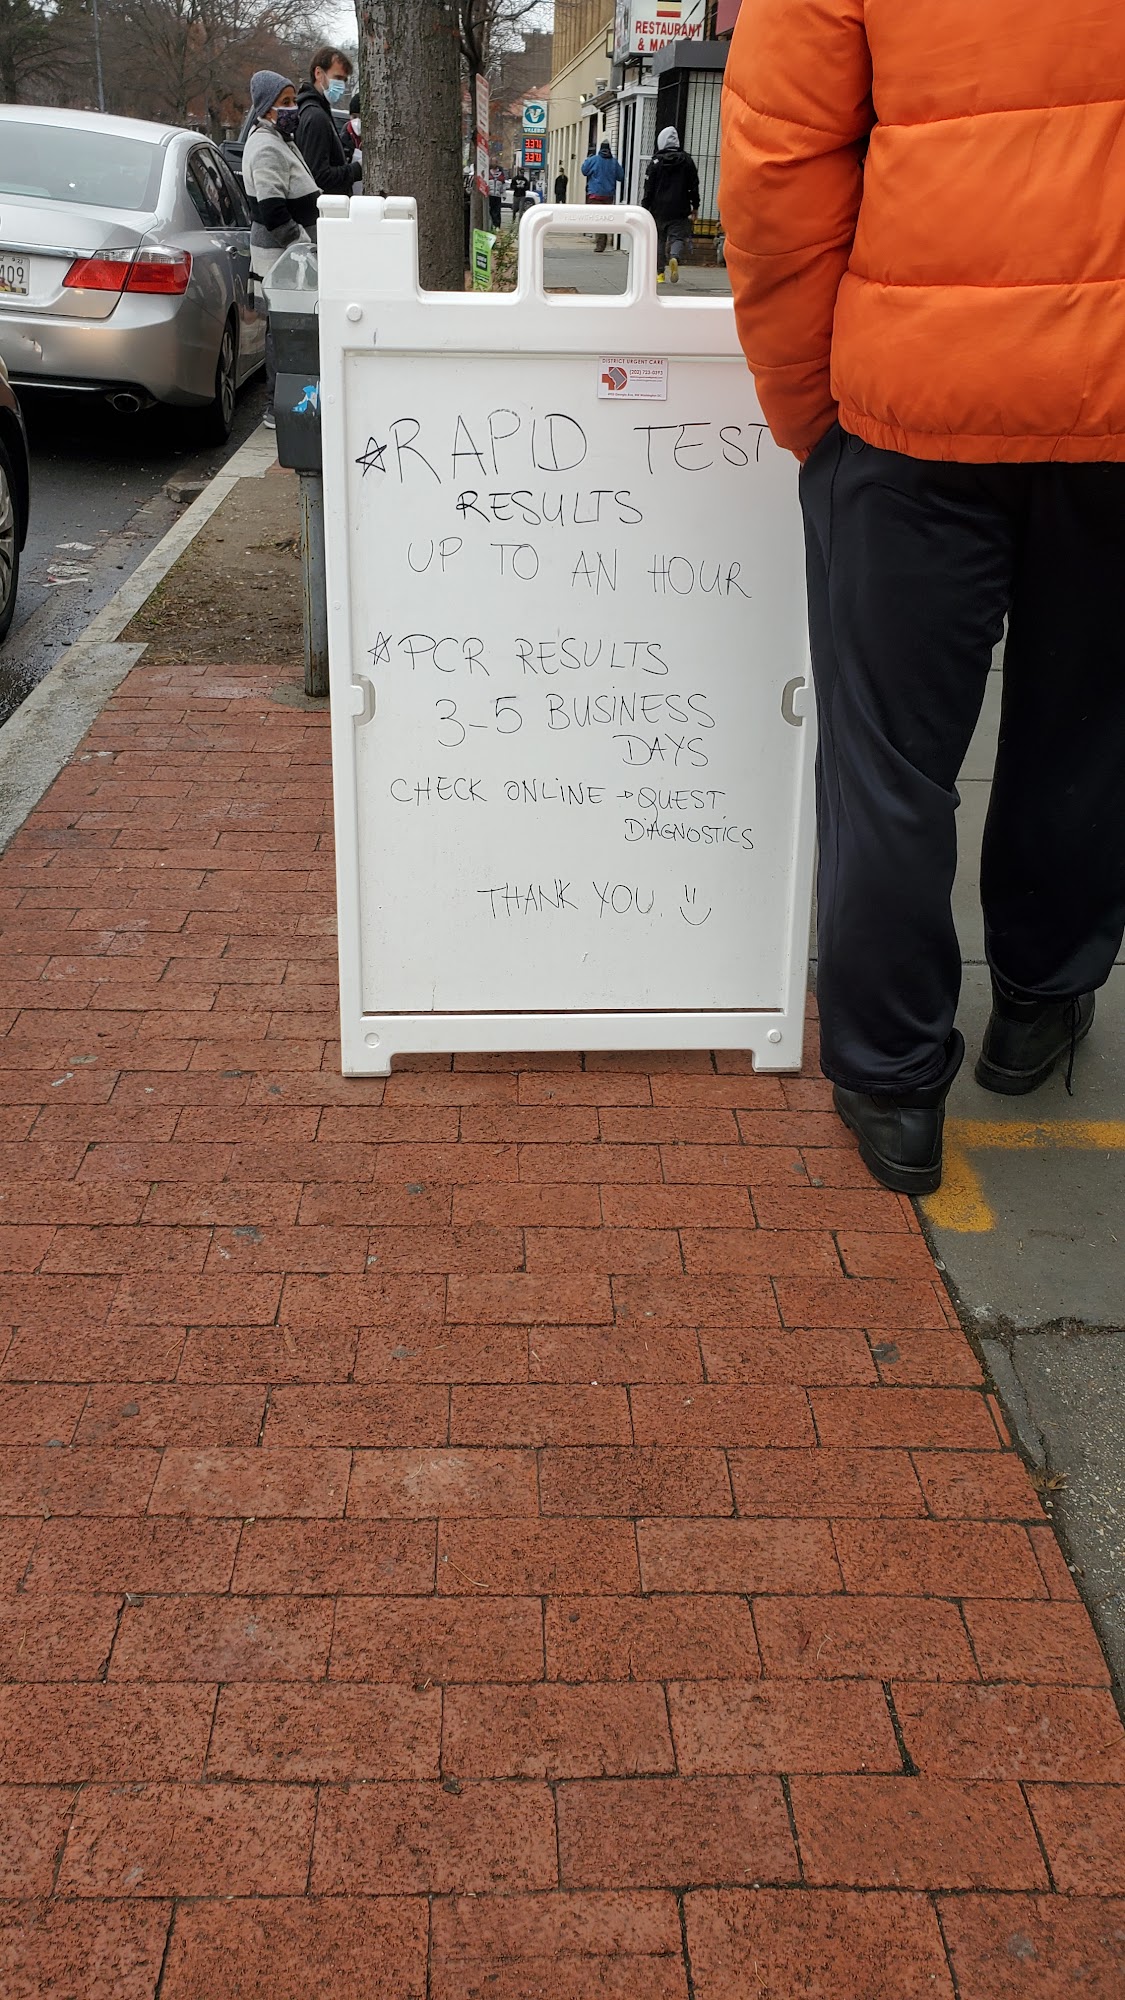 RESTAURANT
& MA
VALERO
409
DISTRICT URGENT CARE
(202) 723-0393
☆RAPID TEST
RESULTS
UP TO AN HOUR
☆PCR RESULTS
3-5 BUSINESS
DAYS
CHECK ONLINE → QUEST
DIAGNOSTICS
THANK YOU.